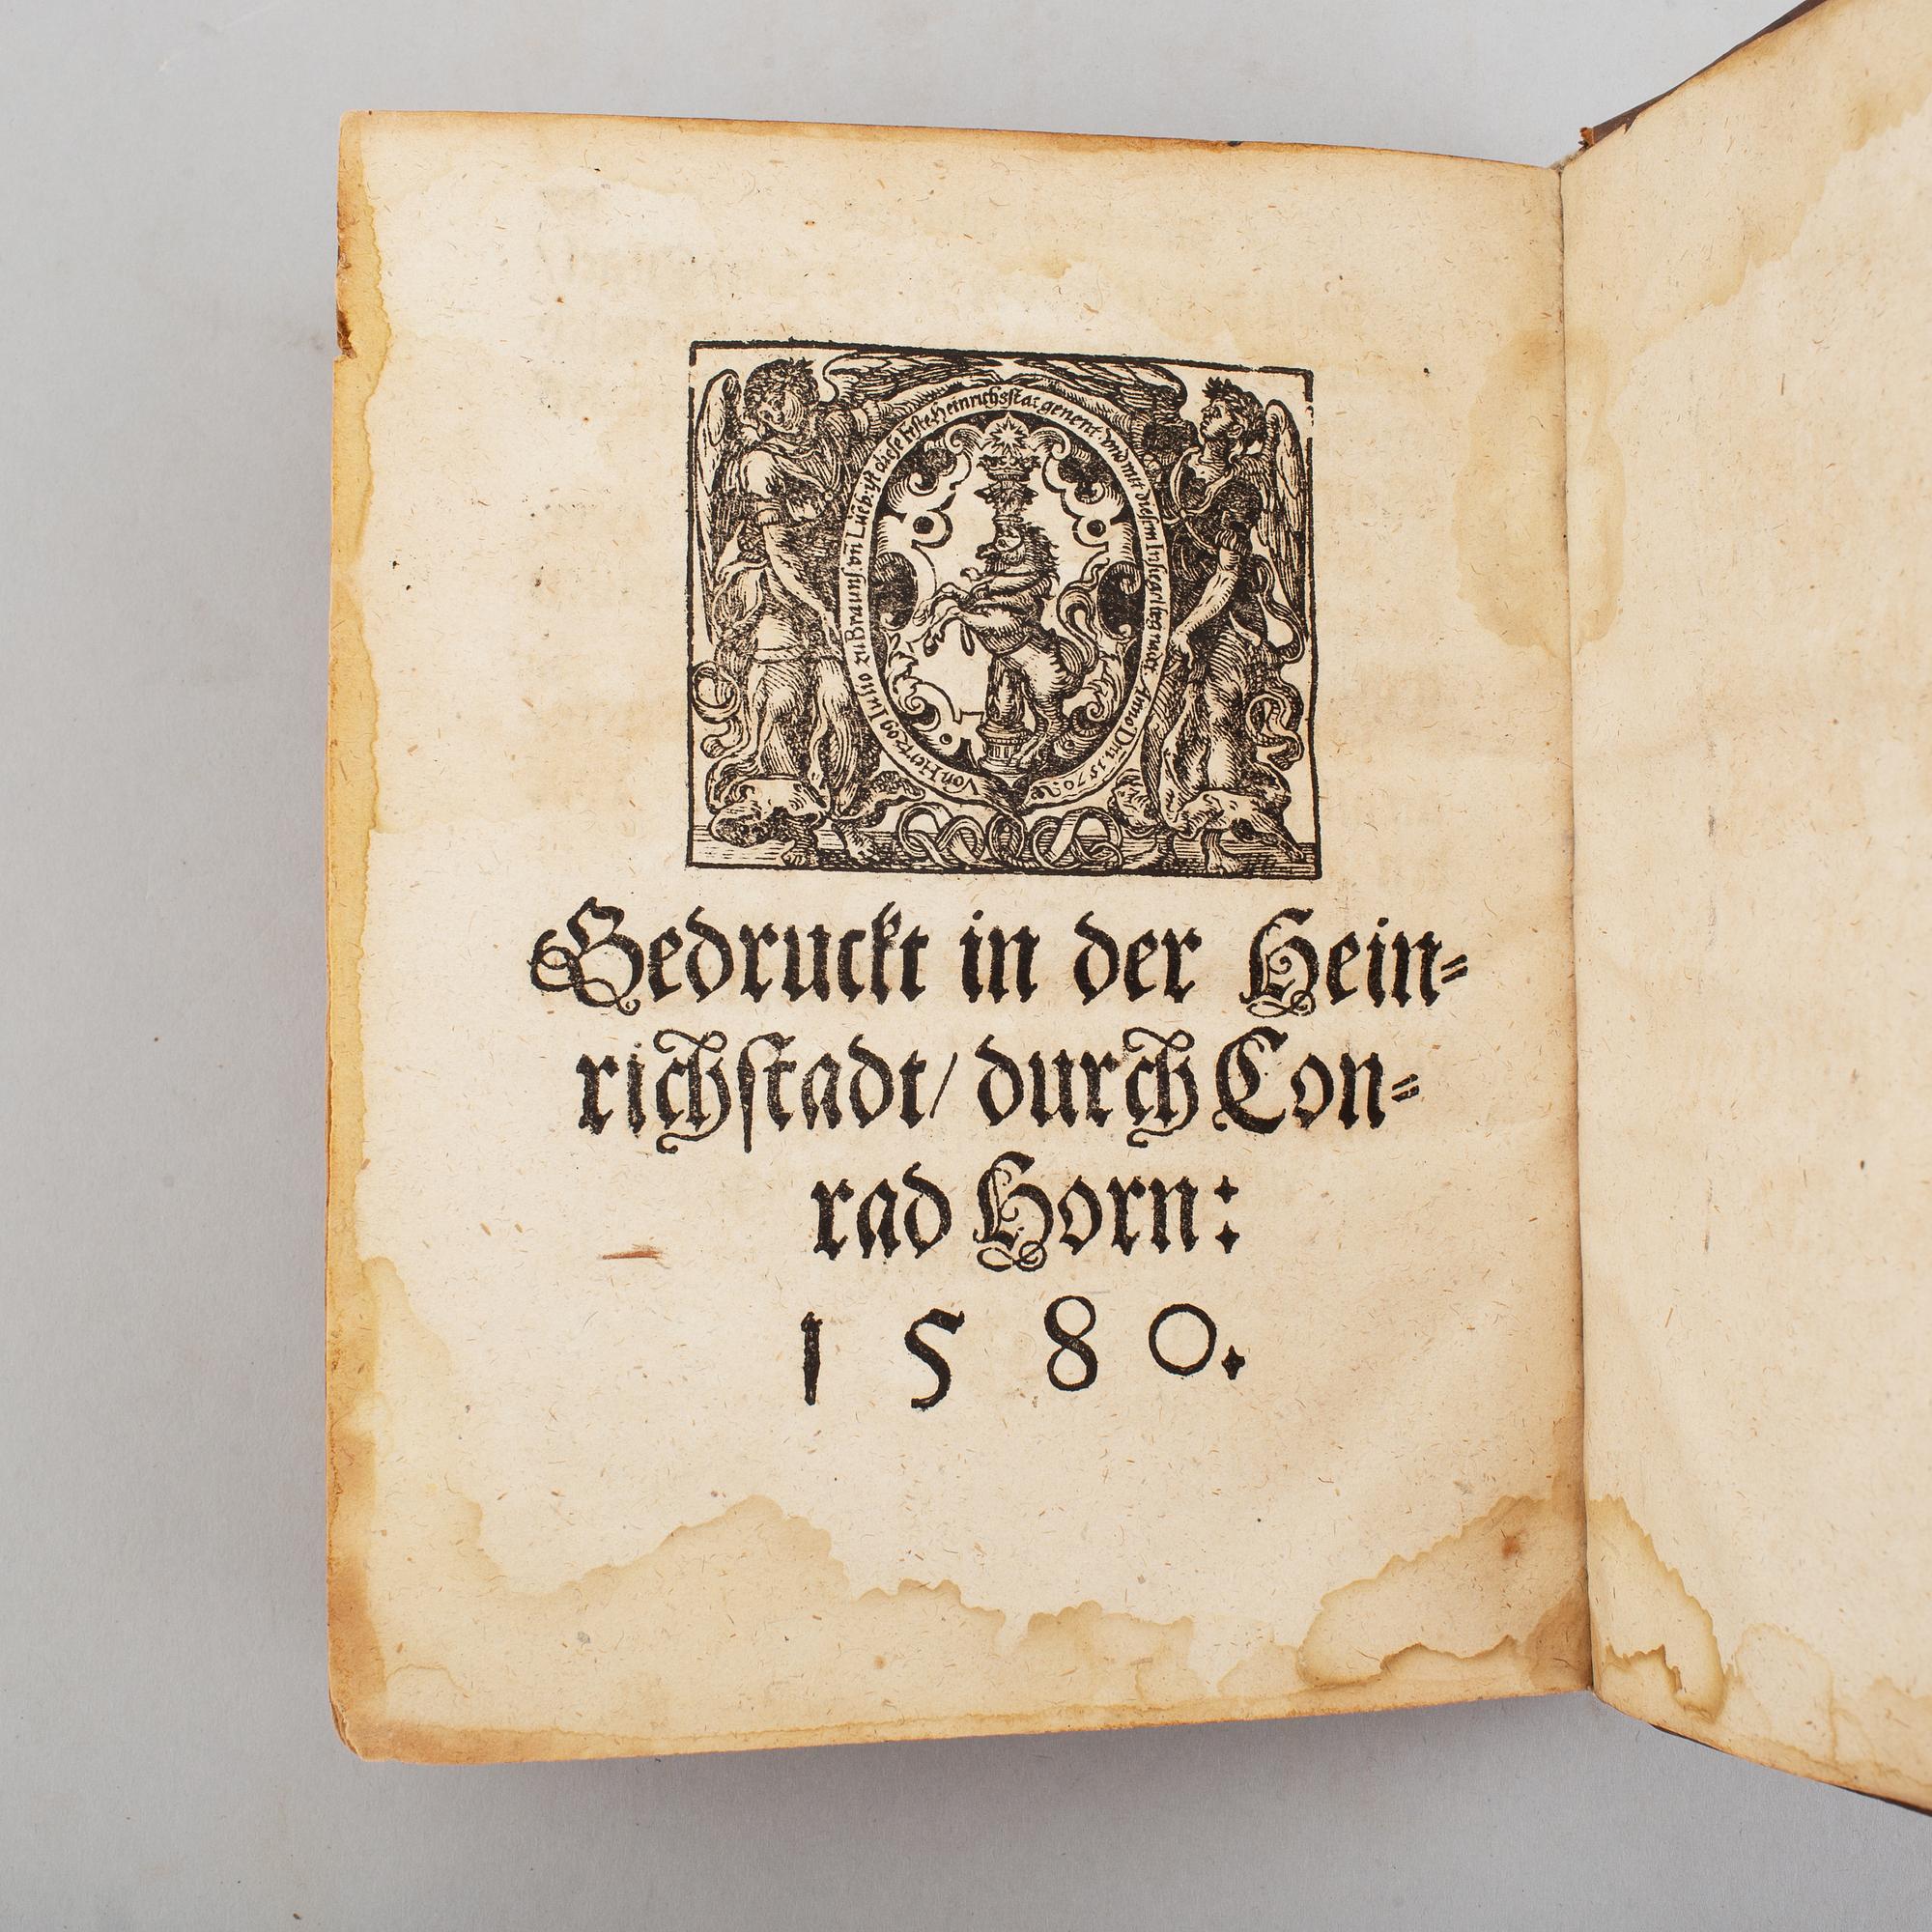 Von Hertzog Julio zu Braunſ. vñ Lüeb: iſt dieſe feſte Heinrichsſtat genent. vnd mit dieſem Inſiegel Anno Dñi. 1570
Gedruckt in der Hein⸗
richſtadt/ durch Con⸗
rad Horn:
1580.